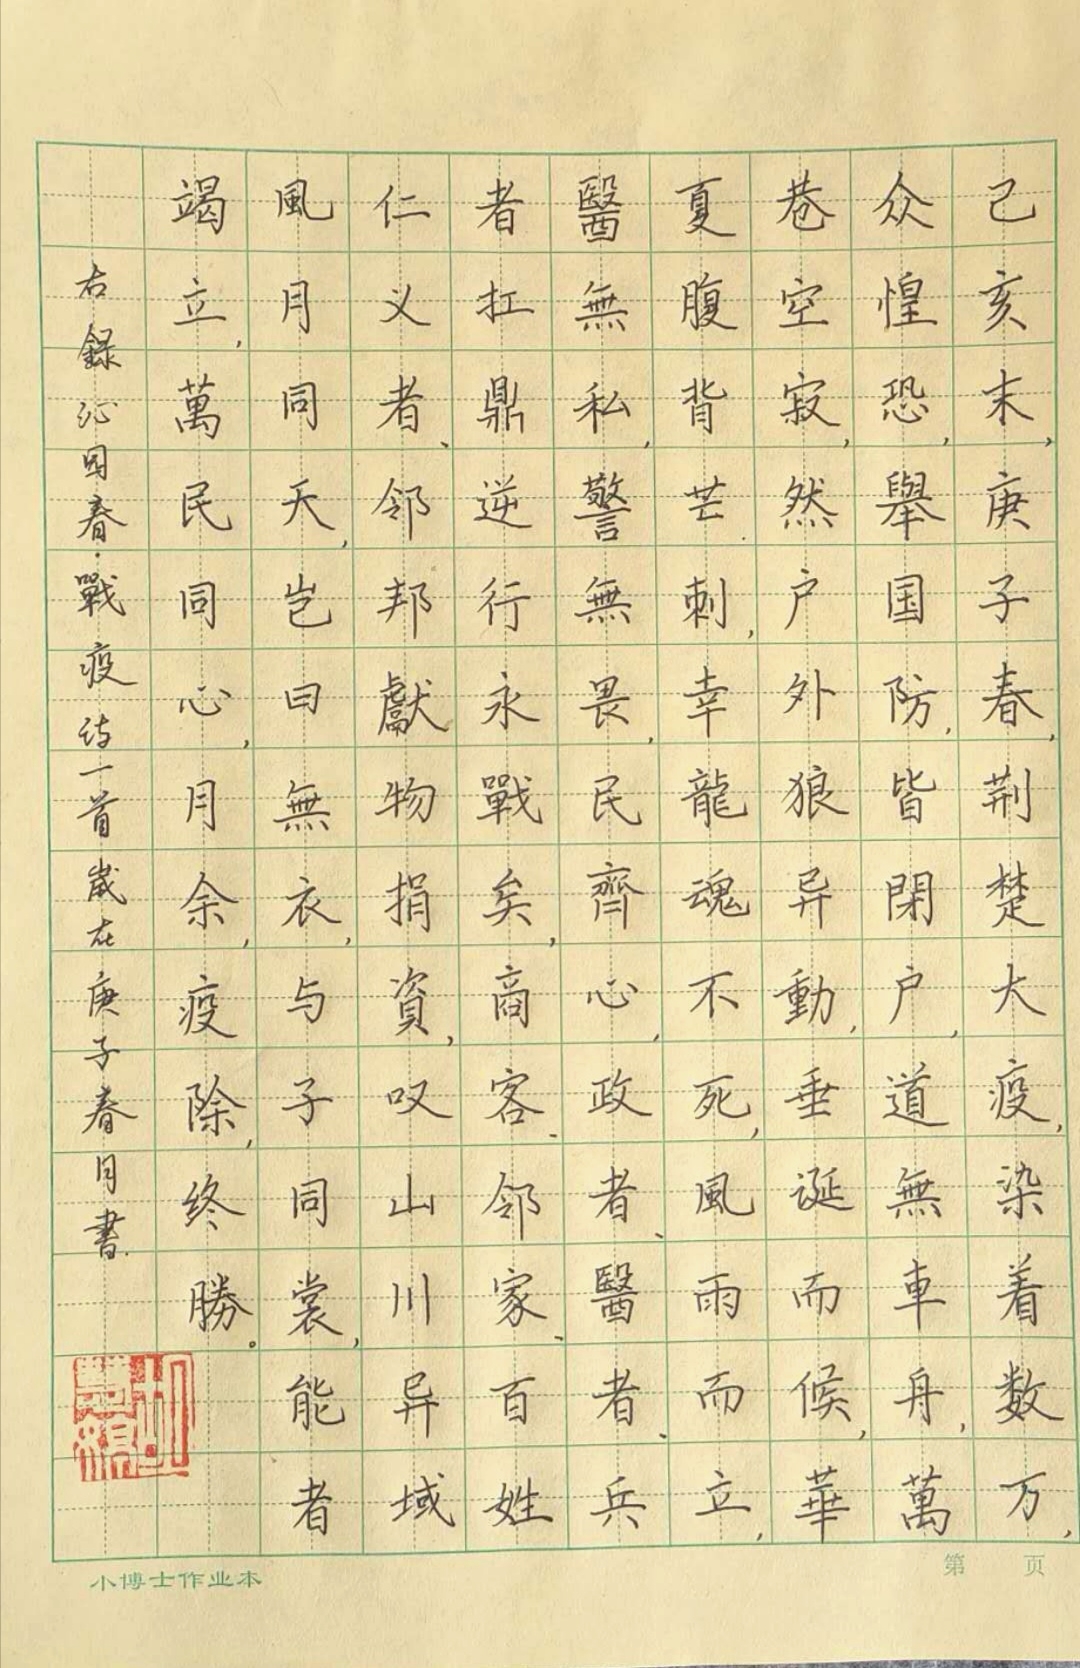 己亥末,庚子春,荆楚大疫,染着数万,
众惶恐,舉国防,皆閉户,道無車舟,萬
巷空寂,然户外狼异動,垂诞而候,華
夏腹背芒刺,幸龍魂不死,風雨而立,
醫無私,警無畏,民齊心,政者、醫者、兵
者扛鼎逆行永戰矣,商客、邻家、百姓
仁义者、邻邦獻物捐資,叹山川异域
風月同天,岂曰無衣,与子同裳,能者
竭立,萬民同心,月余,疫除,终勝。
右錄沁园春·戰疫诗一首歲在庚子春月書
小博士作业本
第 页